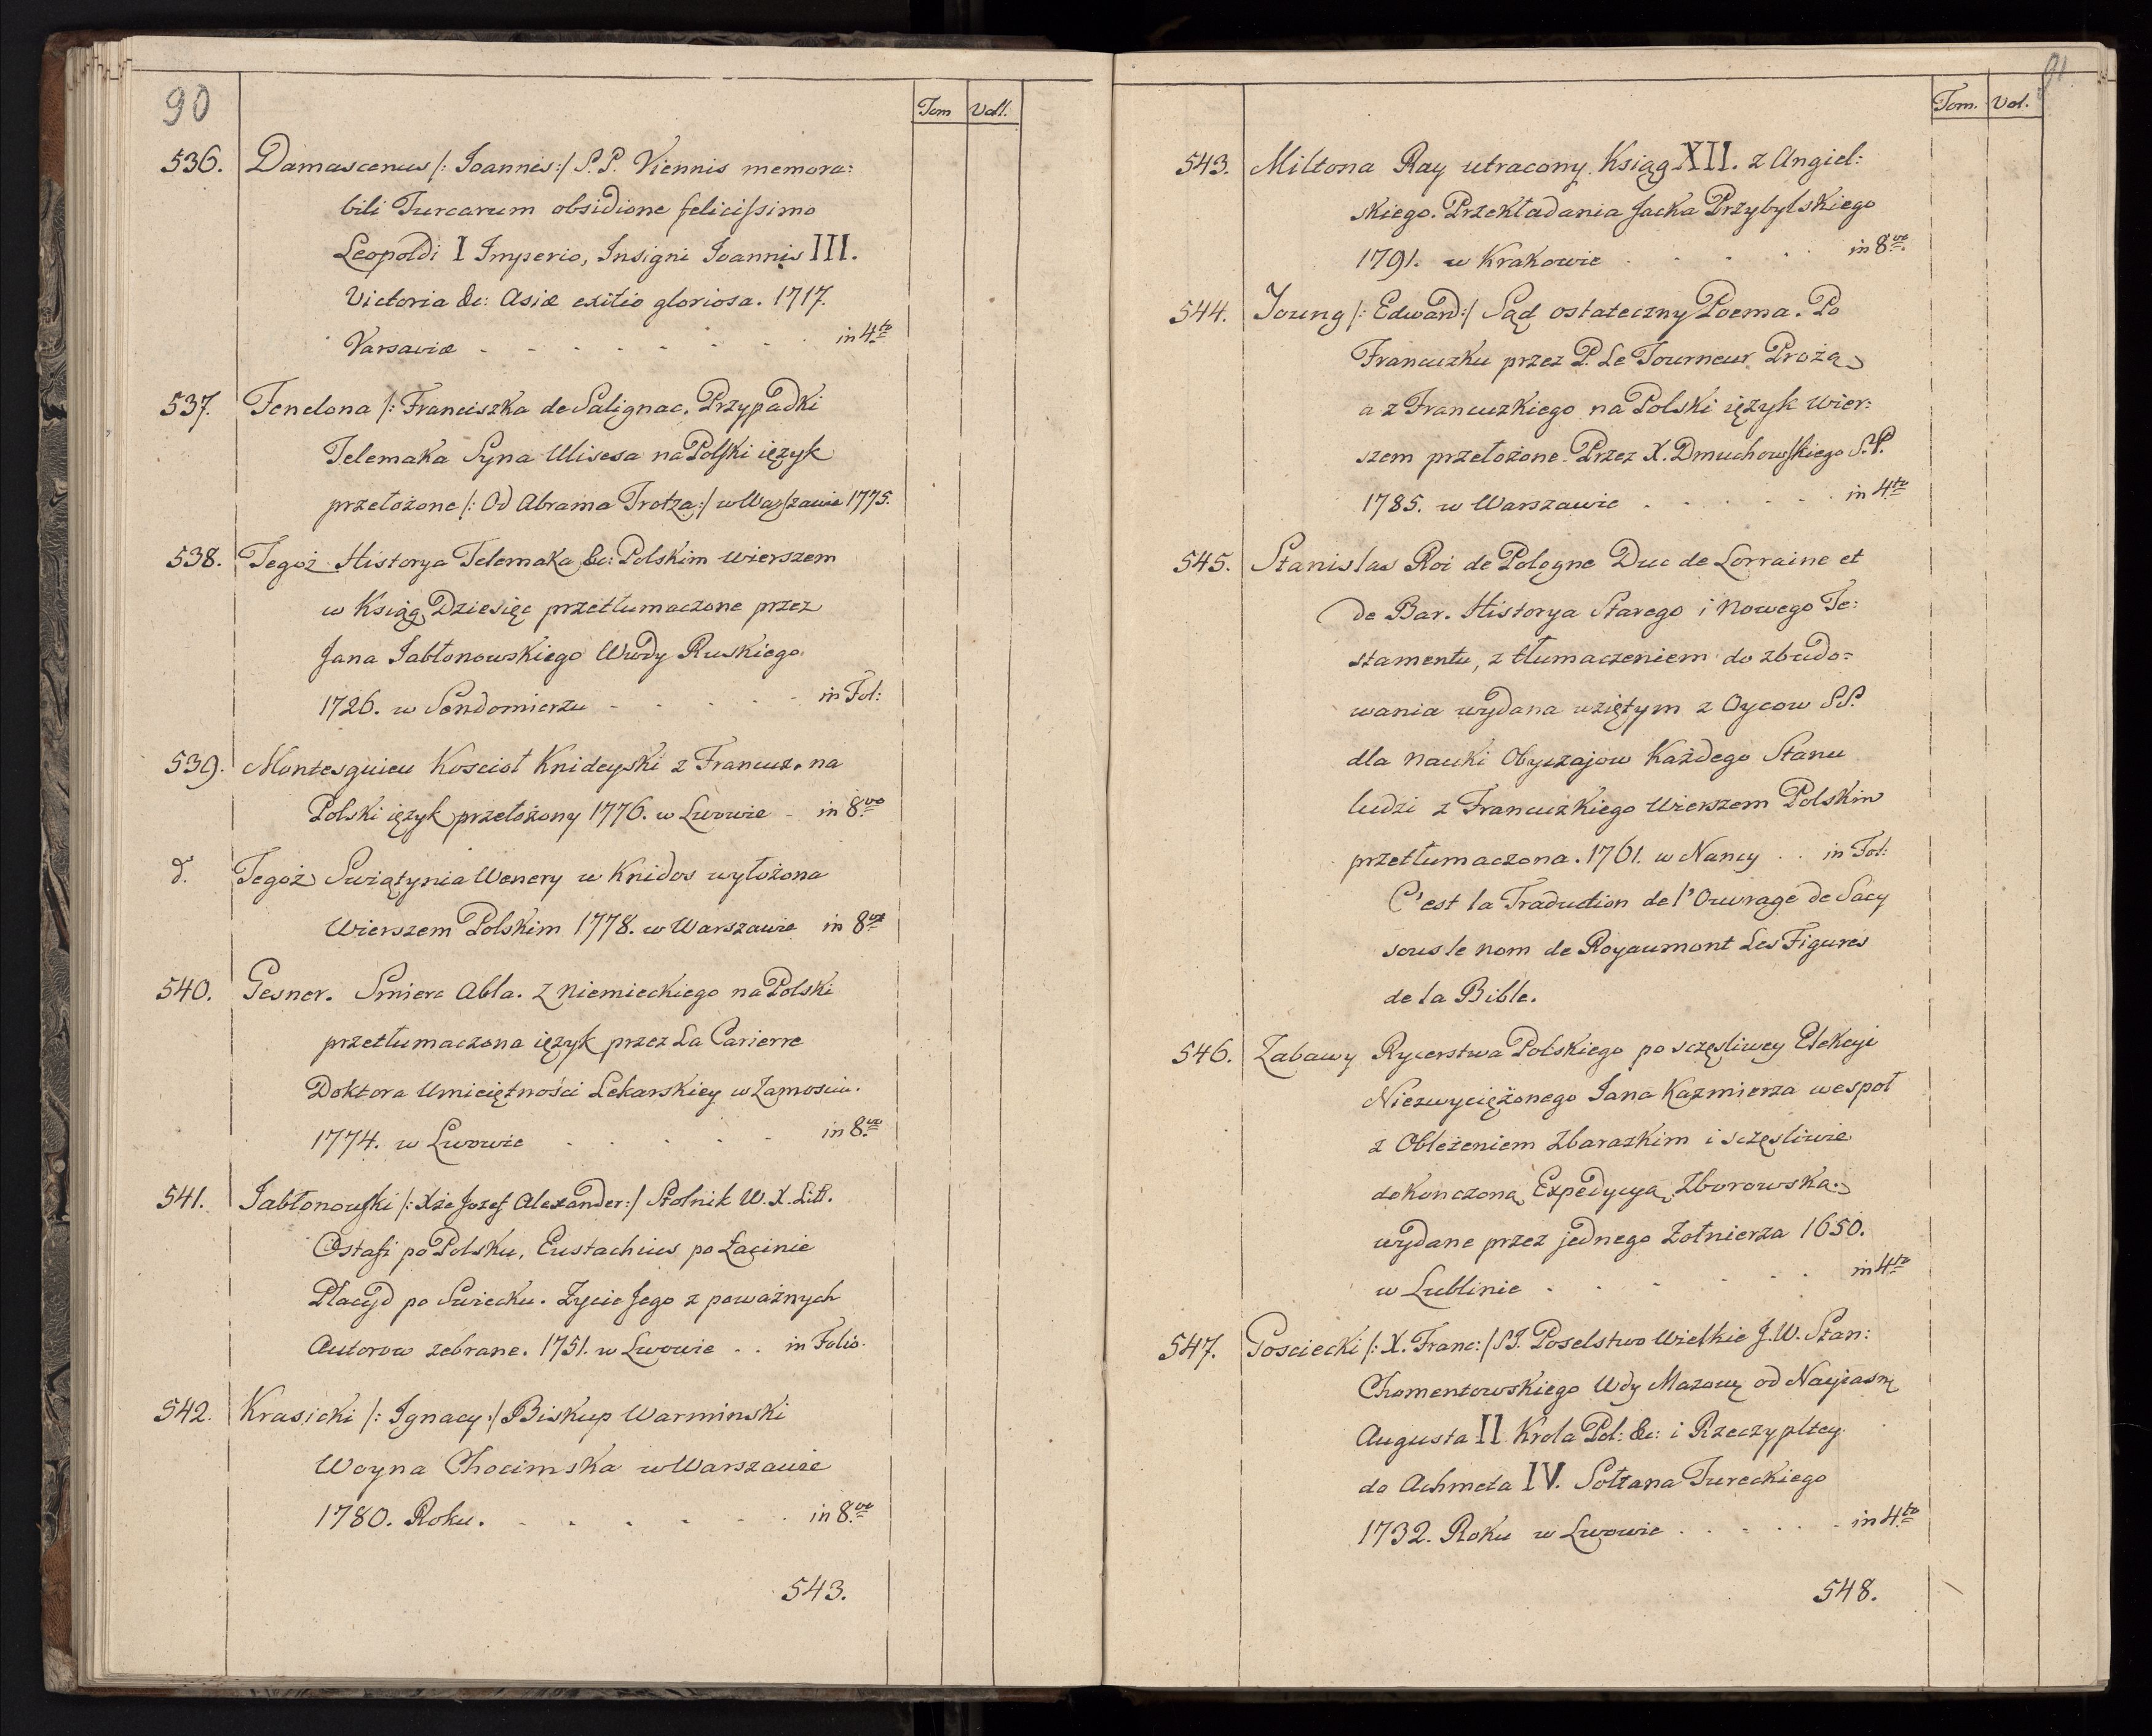 90
Tom Voll.
536. Damascenus /: Joannes:/ S.P. Viennis memora:
bili Turcarum obsidione felicissimo
Leopoldi I Imperio, Insigni Joannis III.
Victoria &c: Asiæ exitio gloriosa. 1717.
Varsaviæ - - - - - - - in 4to
537. Fenelona /: Franciszka de Salignac. Przypadki
Telemaka Syna Ulisesa na Polski ięzyk
przełożone /: Od Abrama Trotza:/ w Warszawie 1775.
538. Tegoż Historya Telemaka &c: Polskim wierszem
w Ksiąg Dziesięc przetłumaczone przez
Jana Jabłonowskiego Wwdy Ruskiego
1726. w Sendomierzu - - - - in Fol:
539. Montesguieu Koscioł Knideyski z Francuz. na
Polski ięzyk przełożony 1776. w Lwowie - in 8vo
d. Tegoż Swiątynia Wenery w Knidos wyłożona
Wierszem Polskim 1778. w Warszawie in 8vo
540. Gesner. Smierc Abla. z Niemieckiego na Polski
przetłumaczona ięzyk przez La Carierre
Doktora Umieiętności Lekarskiey w Zamosciu.
1774. w Lwowie . . . . . in 8vo
541. Jabłonowski /: Xże Jozef Alexander:/ Stolnik W.X. Litt.
Ostafi po Polsku, Eustachius po Łacinie
Placyd po Swiecku. Zycie Jego z poważnych
Autorow zebrane. 1751. w Lwowie . . in Folio.
542. Krasicki /: Ignacy:/ Biskup Warminski
Woyna Chocimska w Warszawie
1780. Roku. - - - - - - in 8vo
543.
91
Tom. Vol.
543. Miltona Ray utracony. Ksiąg XII. z Angiel:
skiego. Przekładania Jacka Przybylskiego
1791. w Krakowie . . . . in 8vo
544. Joung /: Edward:/ Sąd ostateczny Poema. Po
Francuzku przez P. Le Tourneur Prozą
a z Francuzkiego na Polski ięzyk wier:
szem przełożone. Przez X. Dmuchowskiego S.P.
1785. w Warszawie . . . . . in 4to
545. Stanislas Roi de Pologne Duc de Lorraine et
de Bar. Historya Starego i Nowego Te:
stamentu, z tłumaczeniem do zbudo=
wania wydana wziętym z Oycow SS.
dla nauki Obyczajow Każdego Stanu
ludzi z Francuzkiego Wierszem Polskim
przetłumaczona. 1761. w Nancy . . in Fol:
C'est la Traduction de l'Ouvrage de Sacy
sous le nom de Royaumont Les Figures
de la Bible.
546. Zabawy Rycerstwa Polskiego po sczęsliwey Elekcyi
Niezwyciężonego Jana Kazmierza wespoł
z Obleżeniem Zbarazkim i sczęsliwie
dokonczoną Expedycyą Zborowską.
wydane przez jednego Zołnierza 1650.
w Lublinie . . . . . in 4to
547. Gosciecki /: X. Franc:/ SJ. Poselstwo Wielkie J.W. Stan:
Chomentowskiego Wdy Mazow od Nayiasn
Augusta II. Krola Pol: &c: i Rzeczypltey
do Achmeta IV. Sołtana Tureckiego
1732. Roku w Lwowie . . . . . in 4to
548.